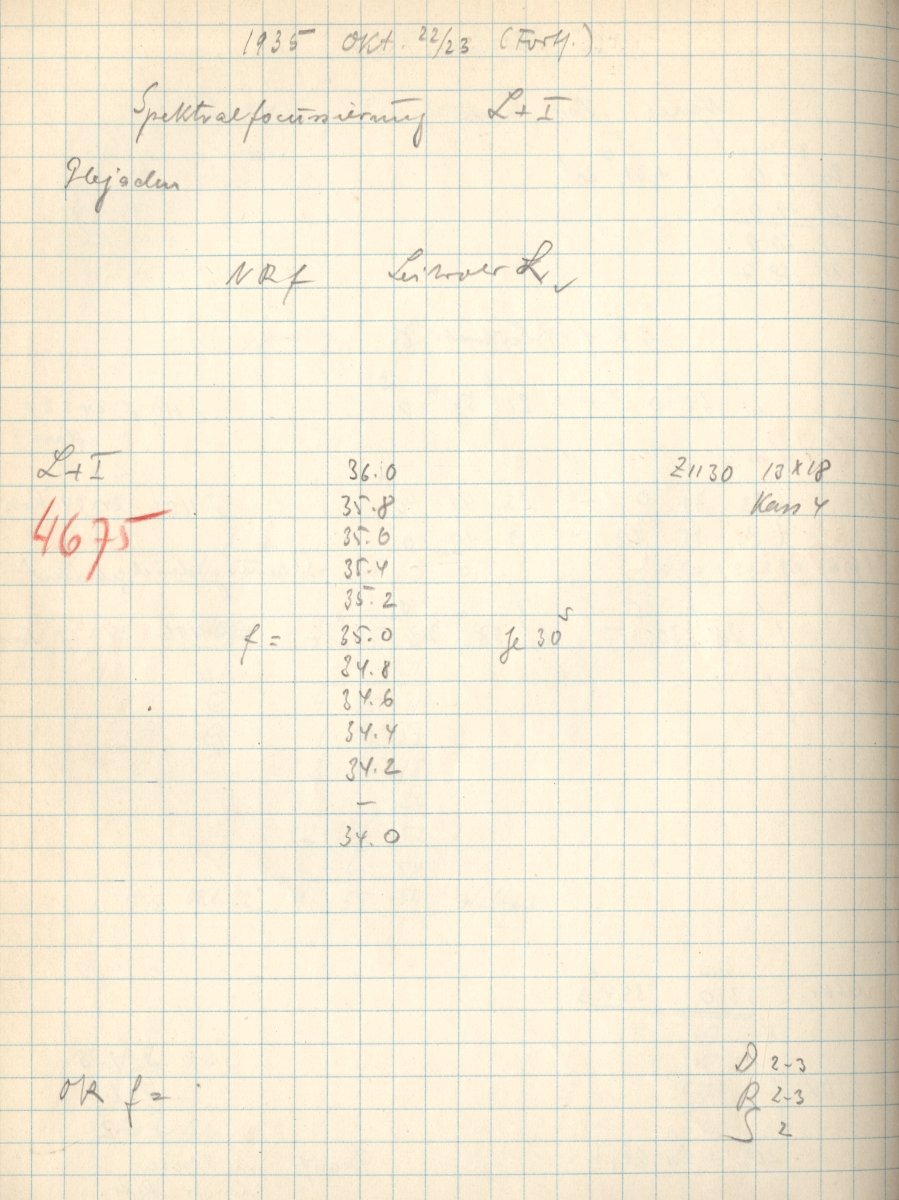 1935 Okt. 22/23 (Forts.)
Spektralfocussierung L+I
Plejaden
NRf
L+I 36.0 Z1130 13x18
4675 35.8 Kass 4
35.6
35.4
35.2
f = 35.0 Je 30s
34.8
34.6
34.4
34.2
–
34.0
OR f =
D 2-3
R 2-3
S 2